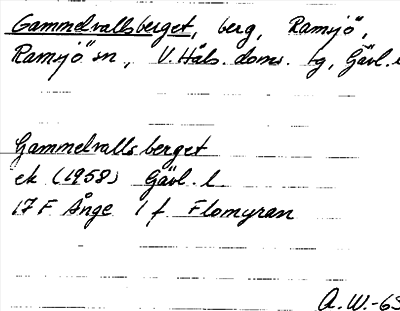 Gammelvallsberget, berg, Ramsjö,
Ramsjö sn, V. Häls. doms. tg, Gävl. l
Gammelvallsberget
ek (1958) Gävl. l
17 F Ånge 1 f Flomyran
A.W.-63